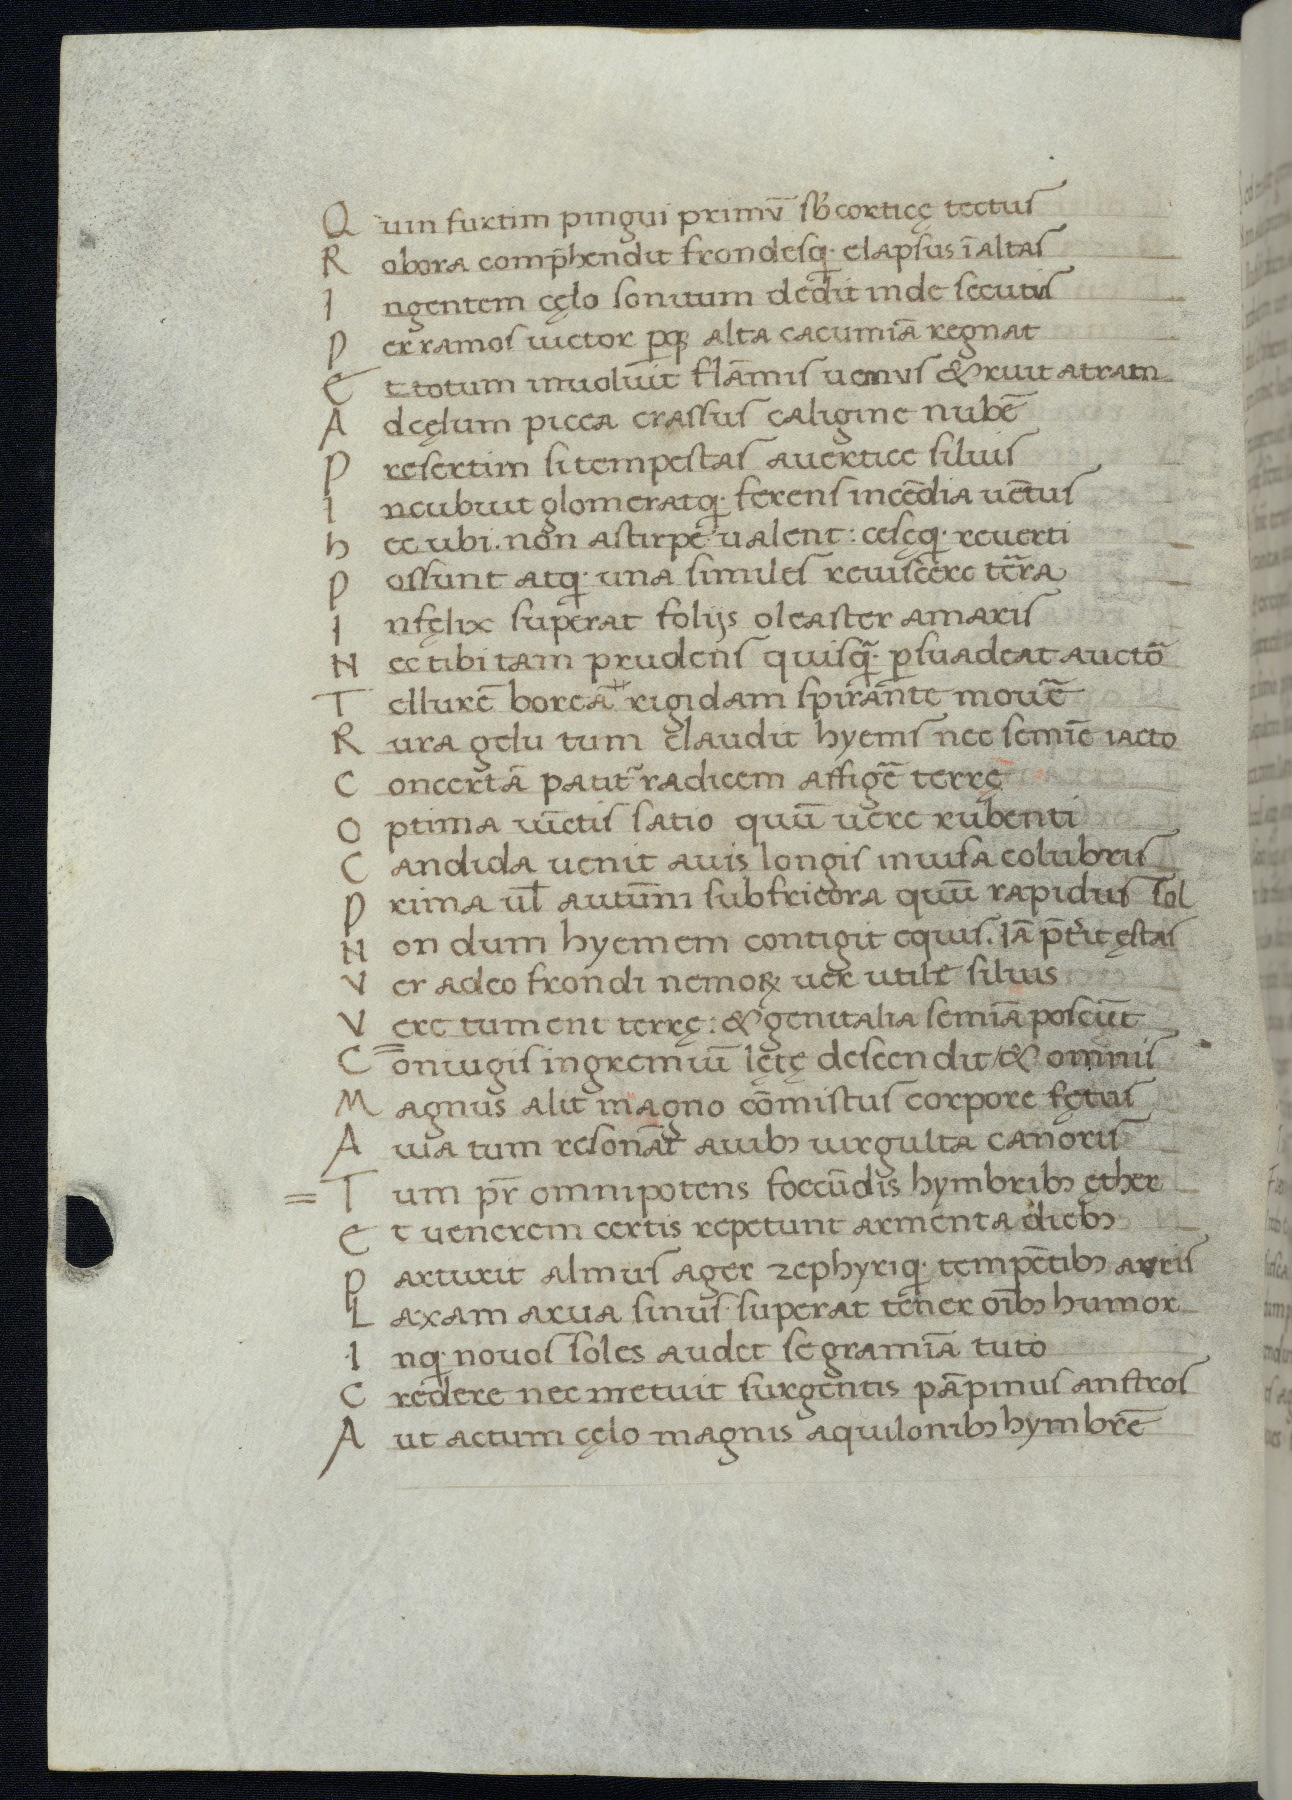 Quin furtim pingui primū sb̄ corticę tectus
Robora comp̄hendit frondesq;. elapsus ī altas
Ingentem cęlo sonitum dedit inde secutus
Per ramos uictor ꝑq; alta cacumiā regnat
Et totum inuoluit flāmis nemus & ruit atram
Ad cęlum picea crassus caligine nubē
Presertim si tempestas auertice siluis
Incubuit glomeratq;. ferens incēdia uētus
hec ubi. non astirpe ualent: cesęq;. reuerti
Possunt atq;. una similes reuiscere tērra
Infęlix superat folijs oleaster amaris
Nec tibi tam prudens quisq̄. ꝑsuadeat auctō
Tellurē boreā rigidam spirānte mouē
Rura gelu tum claudit hyems nec semīe iacto
Concertā patit̄ radicem affigē terrę
Optima uīetis satio quū uere rubenti
Candida uenit auis longis inuisa colubris
Prima ul̄ autūni sub fricora quū rapidus sol
Non dum hyemem contigit equis. Iā p̄terit ęstas
Ver adeo frondi nemoꝝ uer utile siluis
Vere tument terrę: & genitalia semīa poscūt
Coniugis in gremiū lętę descendit / & omnis
Magnus alit magno cōmistus corpore fętus
Auia tum resonāt auibꝫ uirgulta canoris
Tum pr̄ omnipotens foecūdis hymbribꝫ ęther
Et uenerem certis repetunt armenta diebꝫ
Parturit almus ager zephyriq;. tempētibꝫ auris
Laxam arua sinus superat tener oībꝫ humor
Inq;. nouos soles audet se gramīa tuto
Credere nec metuit surgentis pāpinus anstros
Aut actum cęlo magnis aquilonibꝫ hymbrē